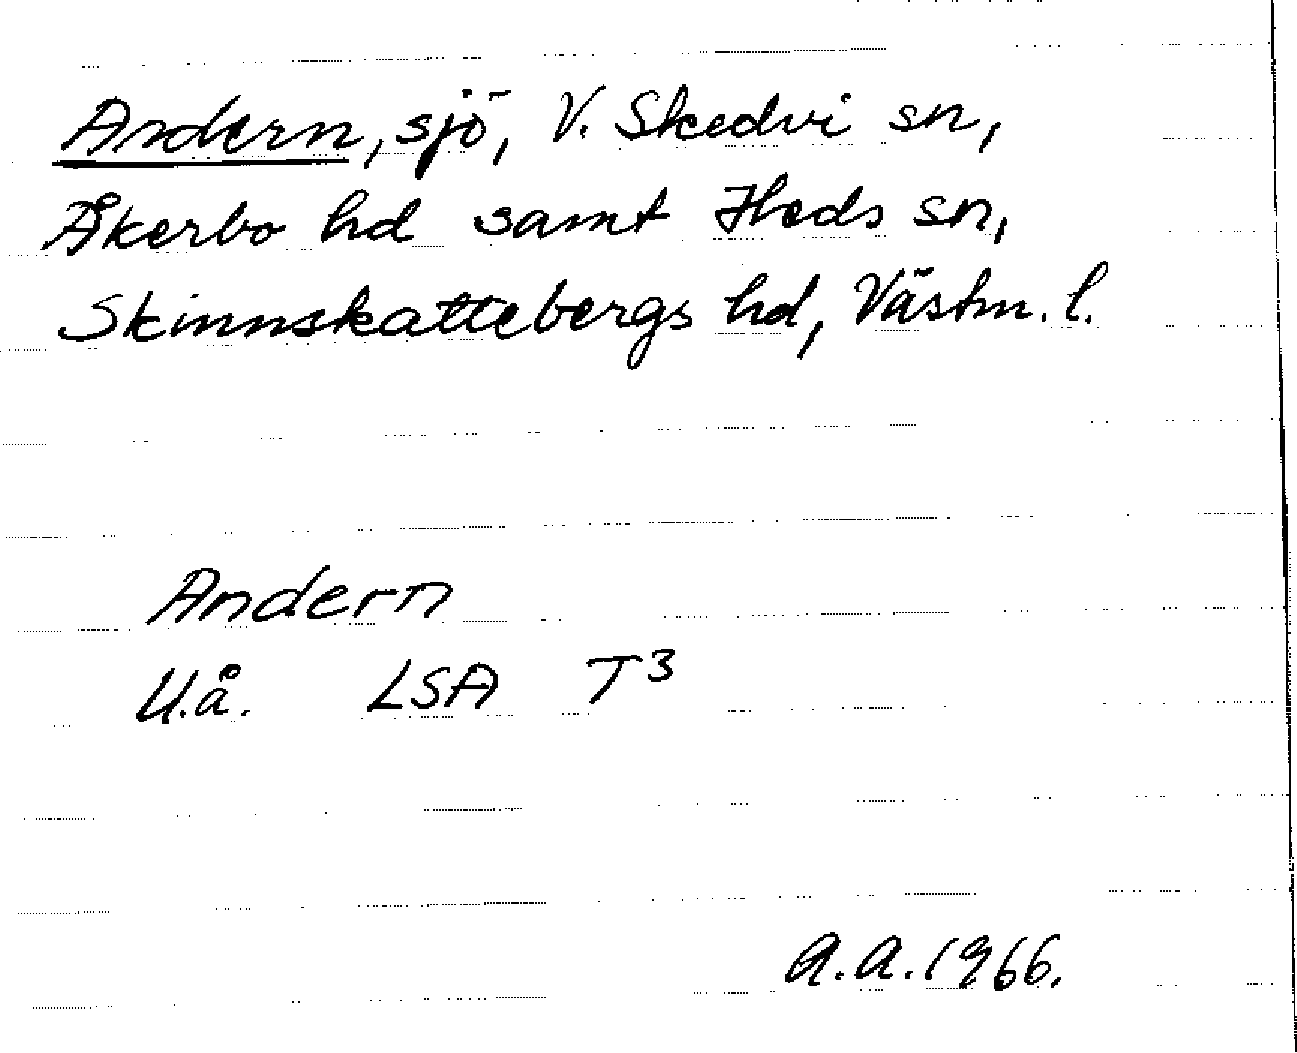 Andern, sjö, V. Skedvi sn,
Åkerbo hd samt Heds sn,
Skinnskattebergs hd, Västm. l.
Andern
U.å. LSA T³
A.A. 1966.